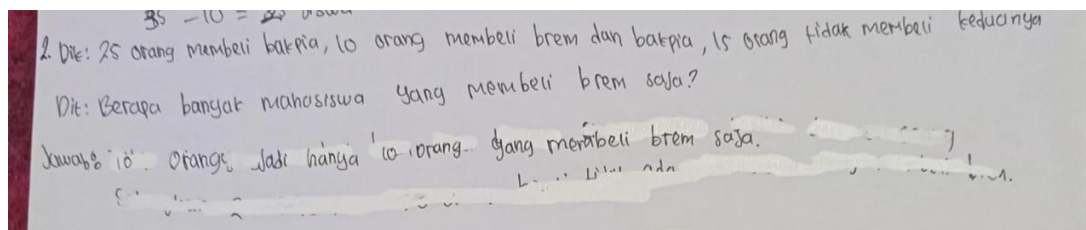 35 - 10 =
2. Dik: 25 orang membeli bakpia, 10 orang membeli brem dan bakpia, 15 orang tidak membeli keduanya
Dit: Berapa banyak mahasiswa yang membeli brem saja?
Jawab: 10 orang. Jadi hanya 10 orang yang membeli brem saja.